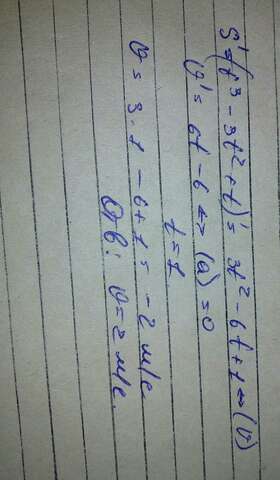 S'=(t³ - 3t² + t)' = 3t² - 6t + 1 ⇔ (v)
v' = 6t - 6 ⇔ (a) = 0
t = 1
v = 3·1 - 6 + 1 = -2 м/с
Отв: v = 2 м/с.